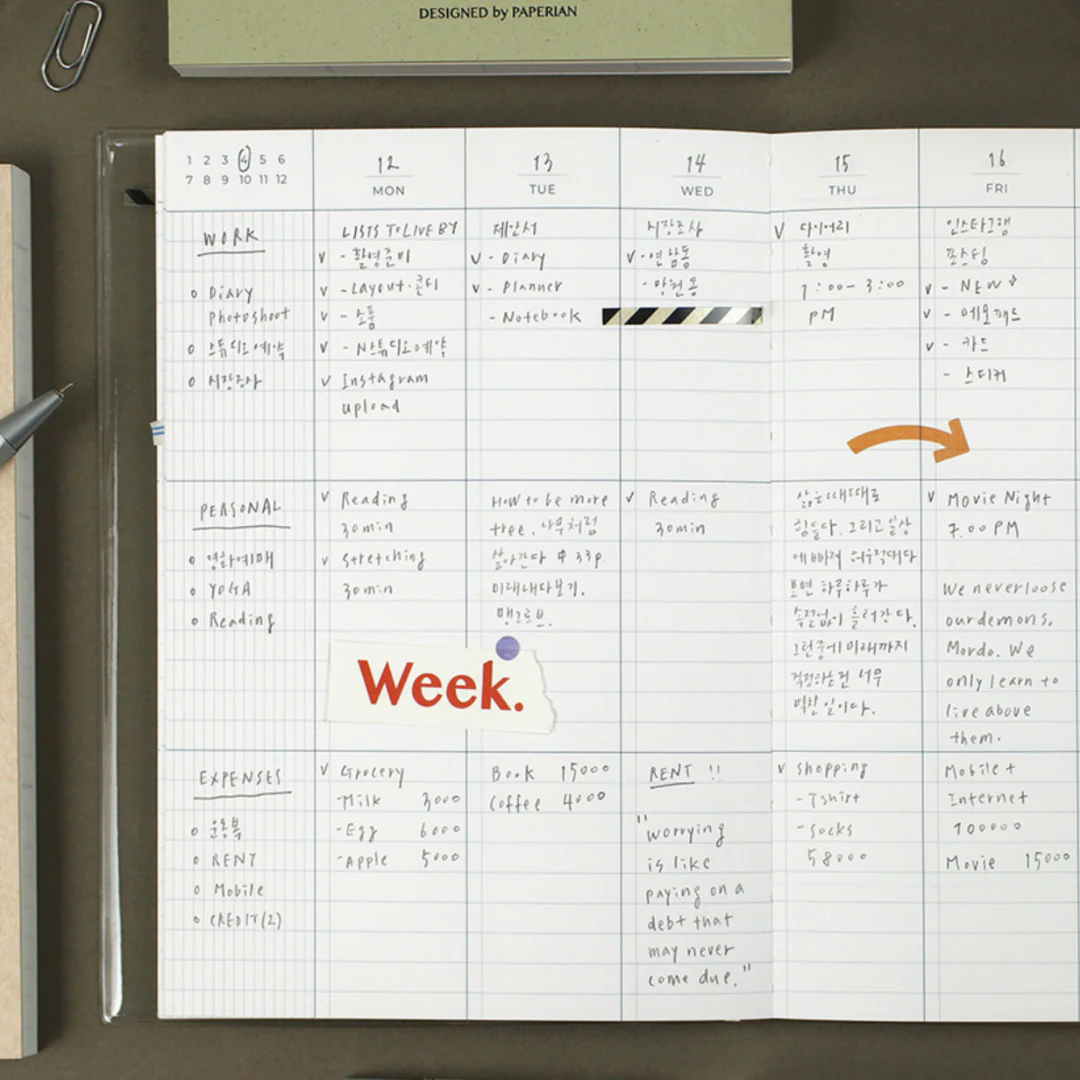 DESIGNED by PAPERIAN
1 2 3 4 5 6
7 8 9 10 11 12
WORK
o Diary
photoshoot
o 스튜디오예약
o 시장조사
PERSONAL
o 영화예매
o YOGA
o Reading
EXPENSES
o 운동복
o RENT
o Mobile
o CREDIT(2)
12
MON
LISTS TO LIVE BY
v - 촬영준비
v - Layout·콘티
v - 소품
v - 스튜디오예약
v Instagram
upload
v Reading
30min
v stretching
30min
Week.
v Grocery
-Milk 3000
-Egg 6000
-Apple 5000
13
TUE
제안서
v - Diary
v - Planner
- Notebook
How to be more
tree. 나무처럼
살아간다 33p.
미래내다보기.
맹그로브.
Book 15000
Coffee 4000
14
WED
시장조사
v - 연남동
- 망원동
v Reading
30min
RENT !!
"worrying
is like
paying on a
debt that
may never
come due."
15
THU
v 다이어리
촬영
1:00-3:00
PM
삶은 때때로
힘들다. 그리고 일상
에 빠져 허우적대다
보면 하루하루가
속절없이 흘러간다.
그런 중에 미래까지
걱정하는 건 너무
벅찬 일이다.
v shopping
- Tshirt
- socks
58000
16
FRI
인스타그램
포스팅
v - NEW
v - 메모패드
v - 카드
- 스티커
v Movie Night
7.00 PM
We never loose
our demons,
Mordo. We
only learn to
live above
them.
Mobile +
Internet
100000
Movie 15000